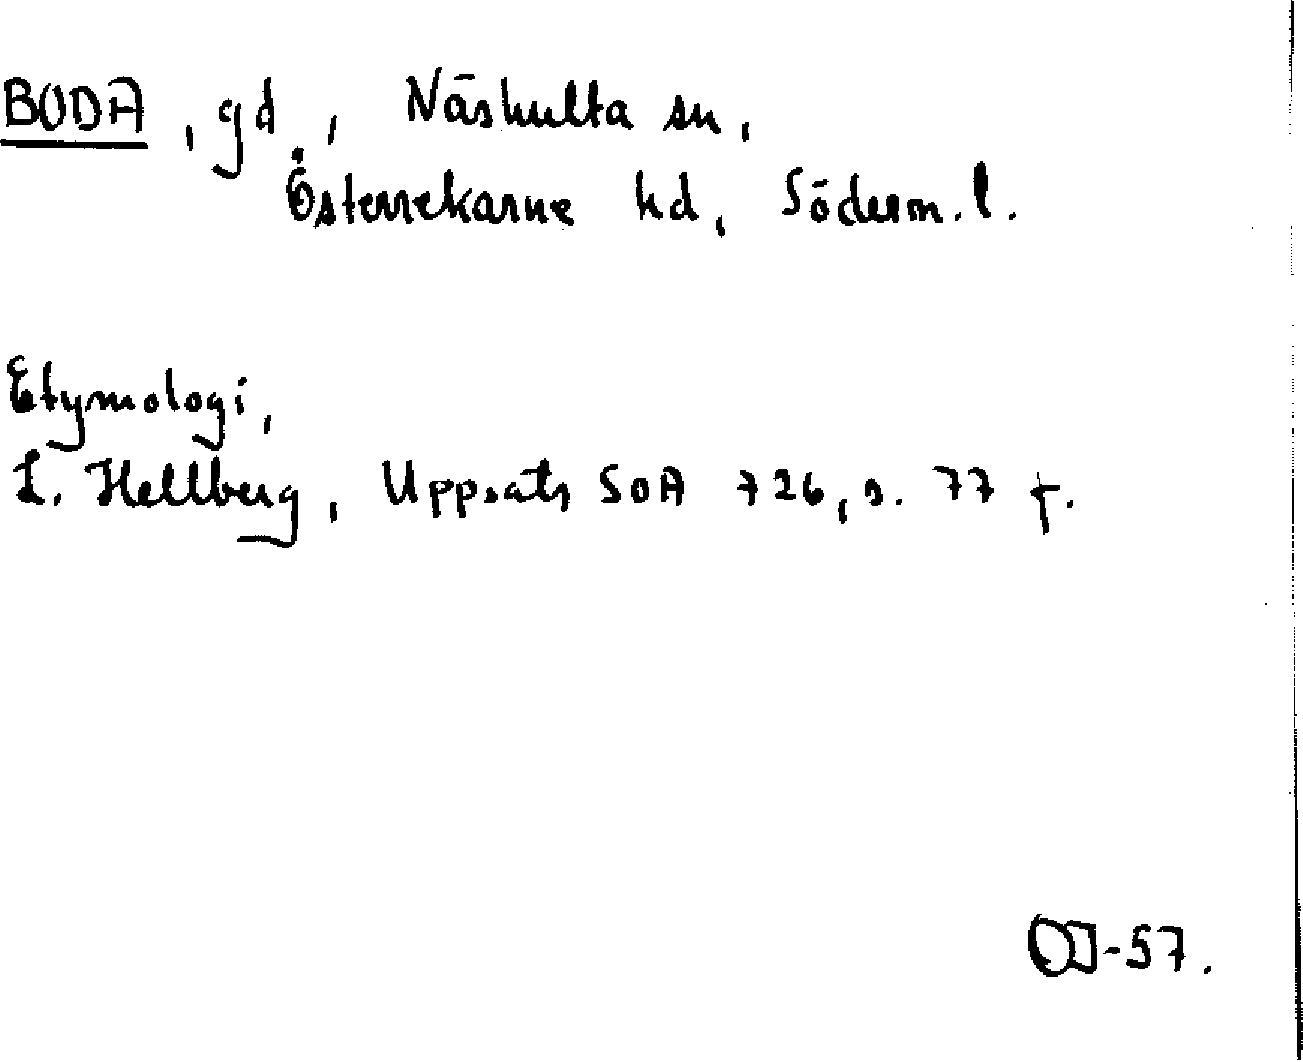 BODA, gd., Näshulta sn,
Österrekarne hd, Söderm. l.
Etymologi,
L. Hellberg, Uppsats SOA 726, s. 77 f.
OJ-57.